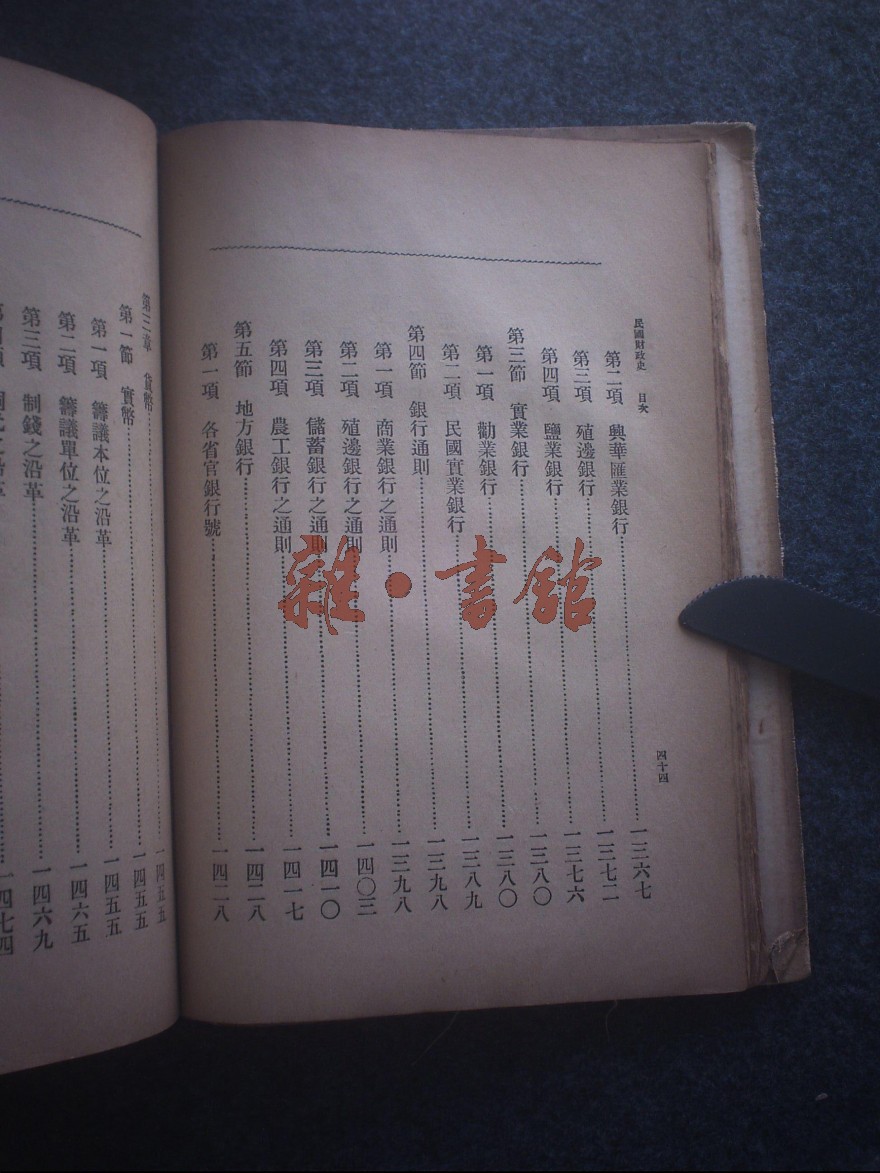 民國財政史 目次 四十四
第二項 興華匯業銀行……一三六七
第三項 殖邊銀行……一三七二
第四項 鹽業銀行……一三七六
第三節 實業銀行……一三八〇
第一項 勸業銀行……一三八〇
第二項 民國實業銀行……一三八九
第四節 銀行通則……一三九八
第一項 商業銀行之通則……一三九八
第二項 殖邊銀行之通則……一四〇三
第三項 儲蓄銀行之通則……一四一〇
第四項 農工銀行之通則……一四一七
第五節 地方銀行……一四二八
第一項 各省官銀行號……一四二八
第三章 貨幣……一四五五
第一節 實幣……一四五五
第一項 籌議本位之沿革……一四五五
第二項 籌議單位之沿革……一四六五
第三項 制錢之沿革……一四六九
之沿革……一四七四
雜·書館